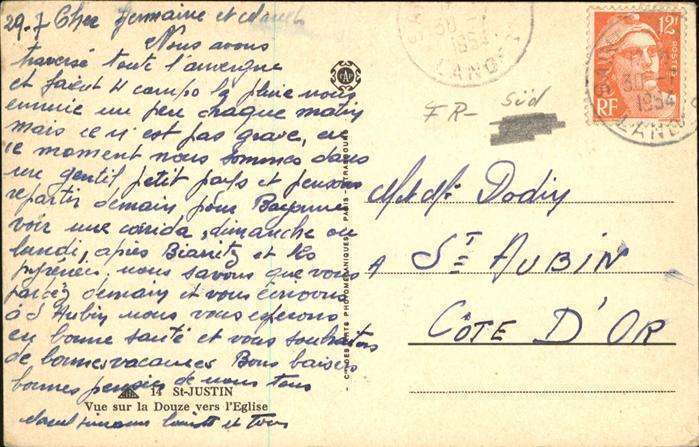 29-7 Cher Germaine et
Nous avons
traversé toute l'auvergne
et faient 4 campo la pluie nous
ennuie un peu chaque matin
mais ce n'est pas grave, en
ce moment nous sommes dans
un gentil petit pays et pensons
repartir demain pour Bayonne
voir une corida, dimanche ou
lundi, après Biarritz et les
pyrénées, nous savons que vous
partez demain et vous écrivons
à S Aubin nous vous espérons
en bonne santé et vous souhaitons
de bonnes vacances Bons baisers
bonnes pensées de nous tous
et tous
14 St-JUSTIN
Vue sur la Douze vers l'Eglise
CAP
Cie DES ARTS PHOTOMÉCANIQUES - PARIS - STRASBOURG
30
1954
LANDES
12F
POSTES
RF
30
1954
LANDES
FR- Süd
M et Me Dodin
A ST AUBIN
CÔTE D'OR